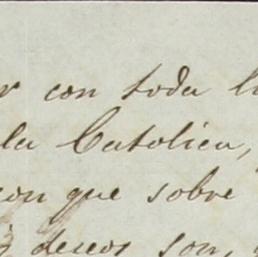 con toda
la Catolica,
con que sobre
deseos son,